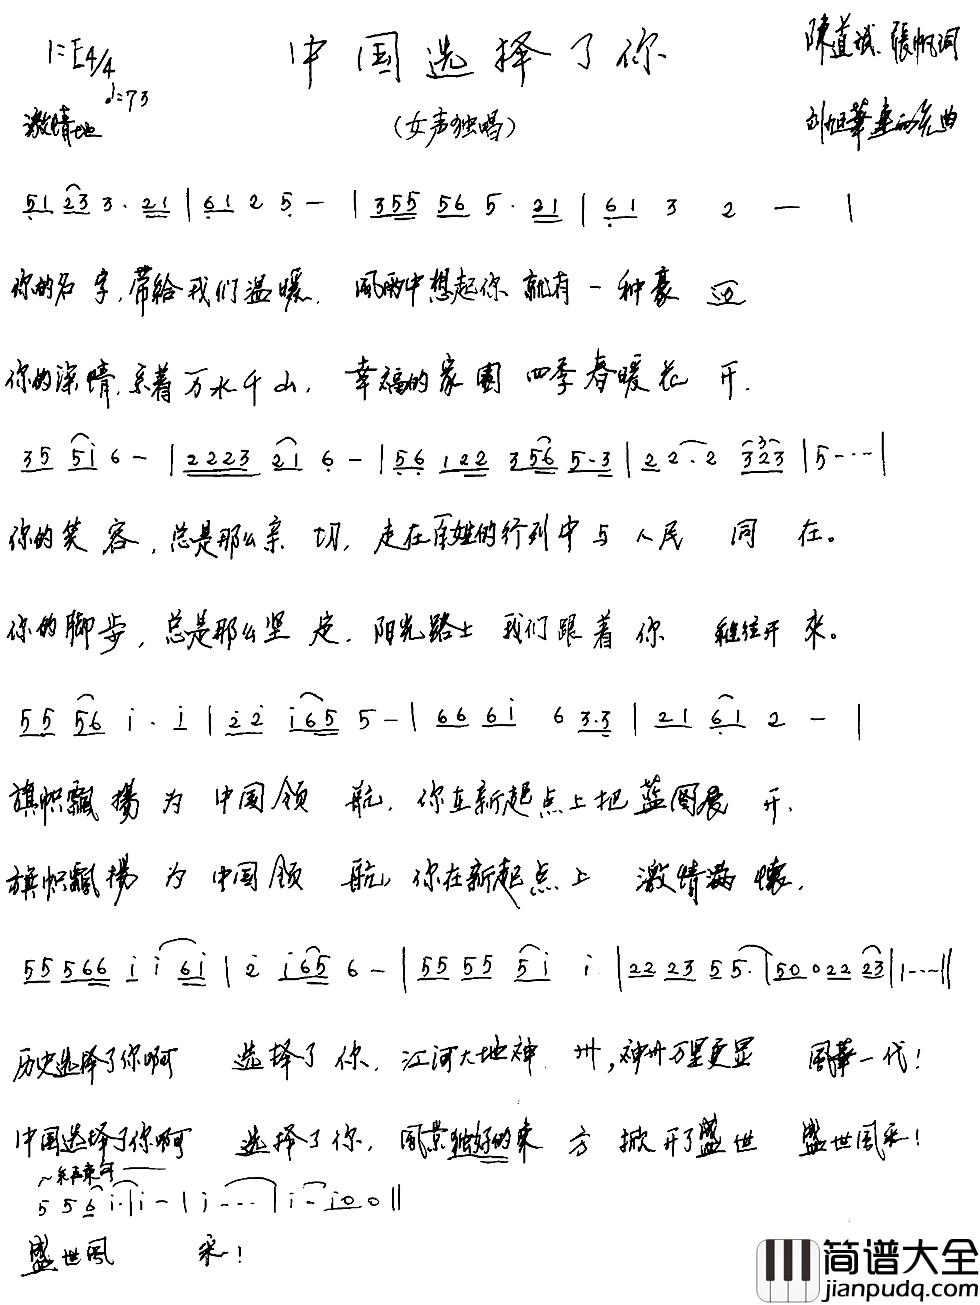 1=E4/4
中国选择了你
陳道斌、張帆词
♩=73
激情地
(女声独唱)
刘旭華 曲
51 23 3· 21 | 61 2 5 - | 355 56 5· 21 | 61 3 2 - |
你的名字,带给我们温暖. 風雨中想起你 就有一种豪迈
你的深情,系着万水千山, 幸福的家園 四季春暖花开.
35 5i 6 - | 2223 21 6 - | 56 122 356 5·3 | 2 2·2 323 | 5 - - - |
你的笑容,总是那么亲切, 走在百姓的行列中与人民同在。
你的脚步,总是那么坚定. 阳光路上 我们跟着你 继往开来。
55 56 i · i | 2 2 i65 5 - | 66 6i 6 3·3 | 21 61 2 - |
旗帜飘揚为中国领航. 你在新起点上把蓝图展开.
旗帜飘揚为中国领航, 你在新起点上 激情满懷.
55 566 i i 6i | 2 i65 6 - | 55 55 5i i | 22 23 5 5· | 50 0 22 23 | 1 - - - ||
历史选择了你啊 选择了你. 江河大地神州,神州万里更显 風華一代!
中国选择了你啊 选择了你, 風景独好的東方 掀开了盛世 盛世風采!
~结束句
5 5 6 i· | i - | i - - - | i - i 0 0 ||
盛世風采!
简谱大全
jianpudq.com